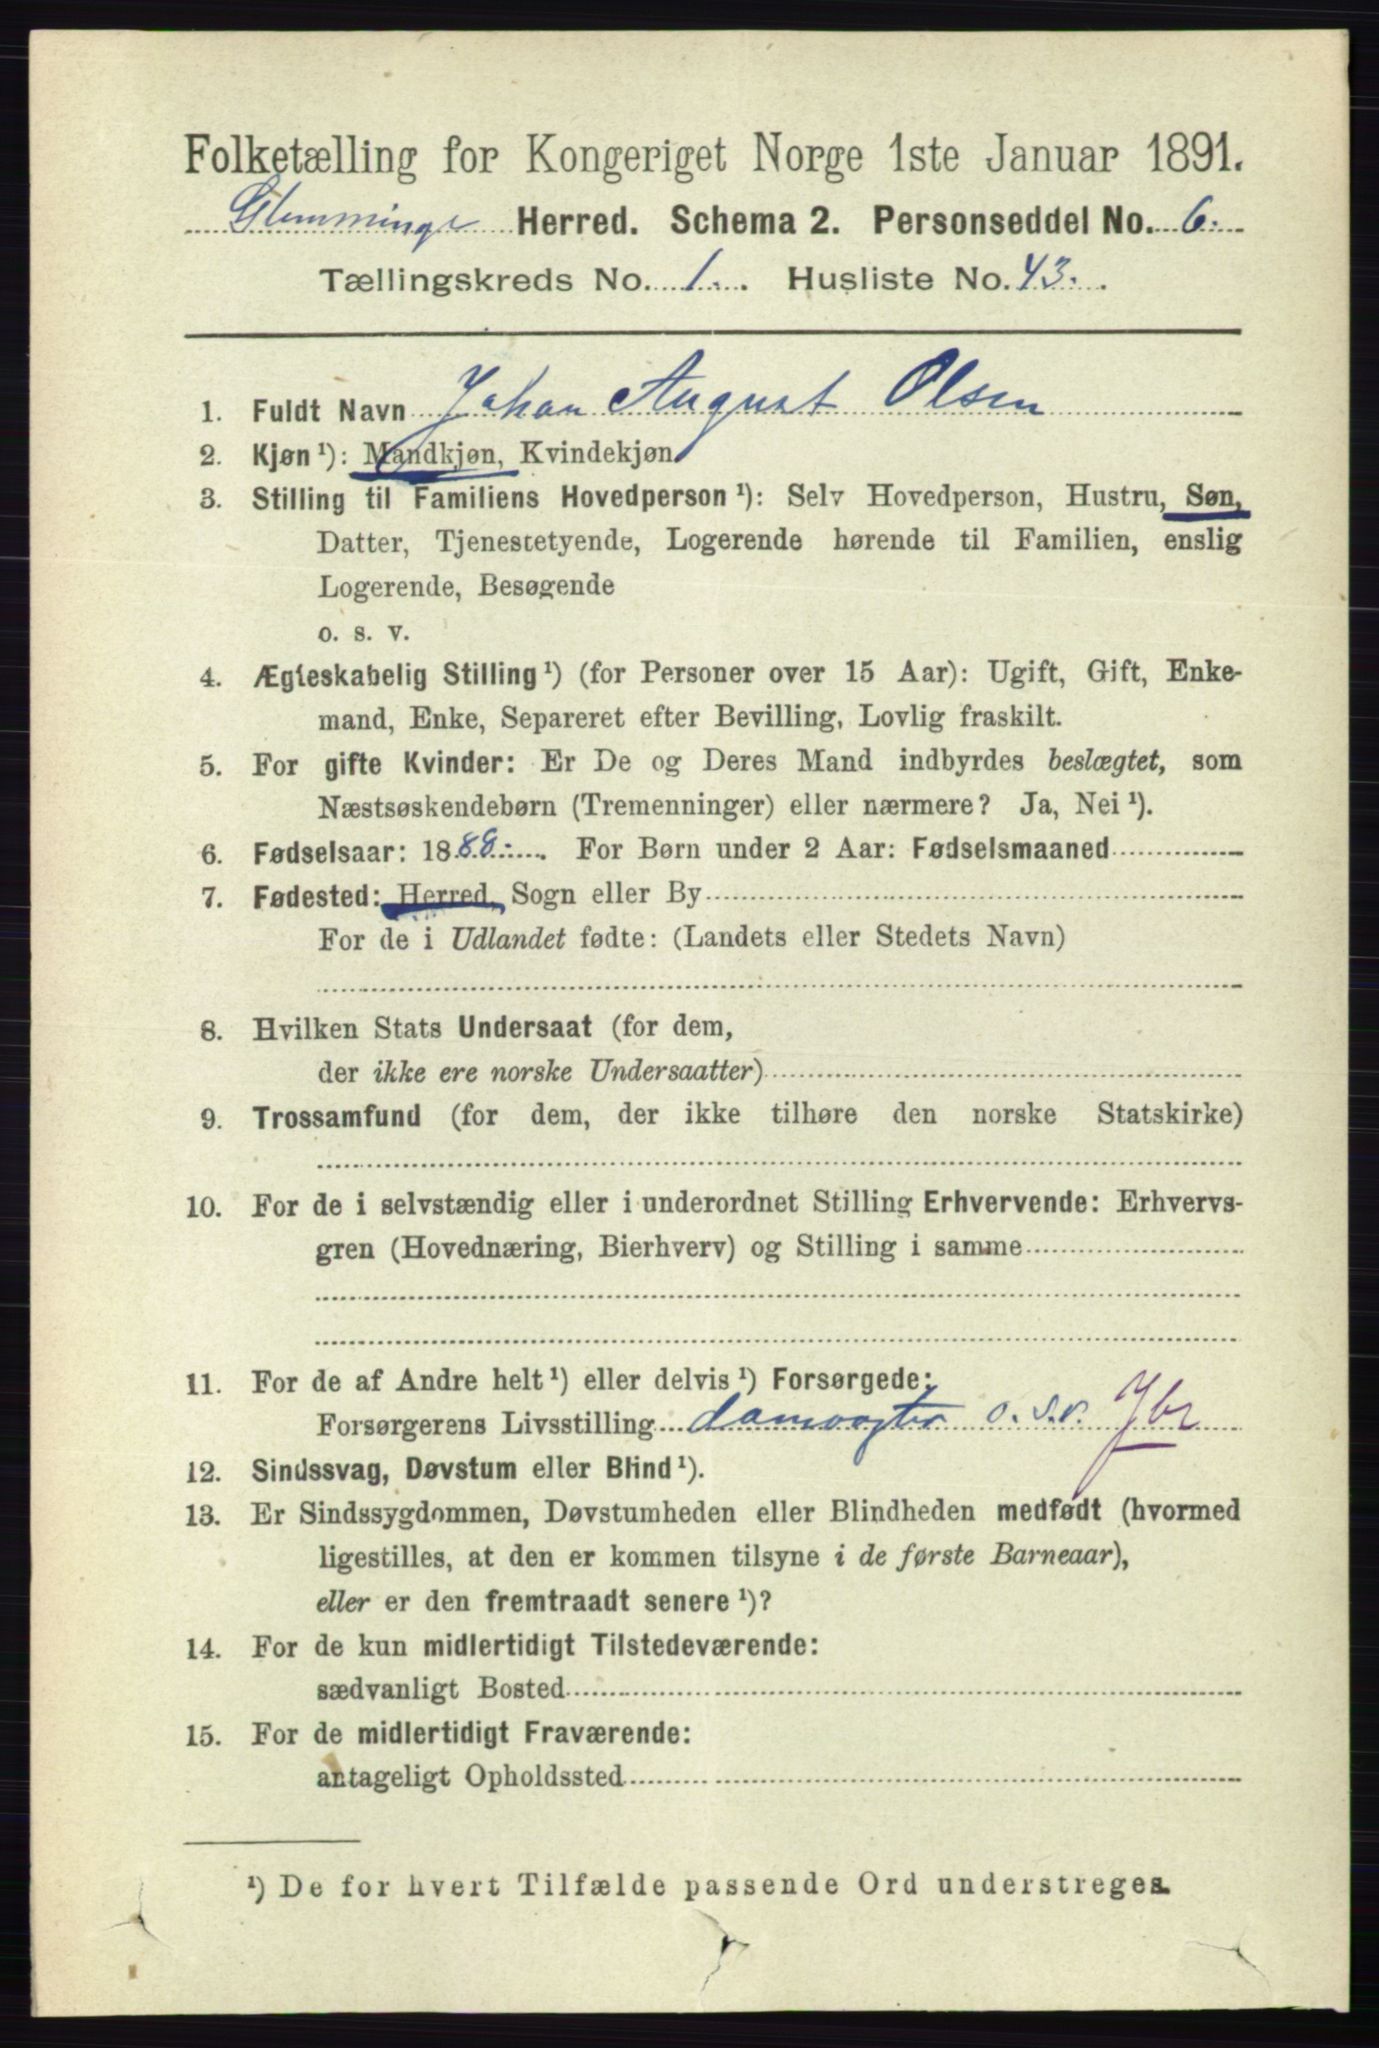 Folketælling for Kongeriget Norge 1ste Januar 1891.
Glemminge Herred. Schema 2. Personseddel No. 6.
Tællingskreds No. 1. Husliste No. 43.
1. Fuldt Navn Johan August Olsen
2. Kjøn ¹): Mandkjøn, Kvindekjøn
3. Stilling til Familiens Hovedperson ¹): Selv Hovedperson, Hustru, Søn,
Datter, Tjenestetyende, Logerende hørende til Familien, enslig
Logerende, Besøgende
o. s. v.
4. Ægteskabelig Stilling ¹) (for Personer over 15 Aar): Ugift, Gift, Enke-
mand, Enke, Separeret efter Bevilling, Lovlig fraskilt.
5. For gifte Kvinder: Er De og Deres Mand indbyrdes beslægtet, som
Næstsøskendebørn (Tremenninger) eller nærmere? Ja, Nei ¹).
6. Fødselsaar: 1888. For Børn under 2 Aar: Fødselsmaaned
7. Fødested: Herred, Sogn eller By
For de i Udlandet fødte: (Landets eller Stedets Navn)
8. Hvilken Stats Undersaat (for dem,
der ikke ere norske Undersaatter)
9. Trossamfund (for dem, der ikke tilhøre den norske Statskirke)
10. For de i selvstændig eller i underordnet Stilling Erhvervende: Erhvervs-
gren (Hovednæring, Bierhverv) og Stilling i samme
11. For de af Andre helt ¹) eller delvis ¹) Forsørgede:
Forsørgerens Livsstilling damvogter o.s.v.
12. Sindssvag, Døvstum eller Blind ¹).
13. Er Sindssygdommen, Døvstumheden eller Blindheden medfødt (hvormed
ligestilles, at den er kommen tilsyne i de første Barneaar),
eller er den fremtraadt senere ¹)?
14. For de kun midlertidigt Tilstedeværende:
sædvanligt Bosted
15. For de midlertidigt Fraværende:
antageligt Opholdssted
¹) De for hvert Tilfælde passende Ord understreges.